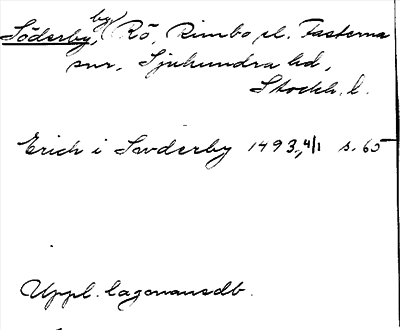 Söderby, by, Rö, Rimbo o. Fasterna
snr, Sjuhundra hd,
Stockh. l.
Erich i Swderby 1493, 4/1 s. 65
Uppl. lagmansdb.